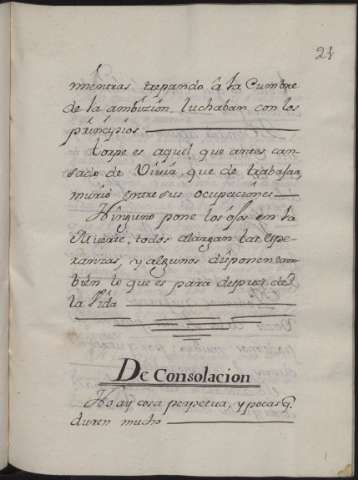 21
mientras trepando â la Cumbre
de la ambición, luchaban con los
principios.
Torpe es aquel que antes can-
sado de Vivir, que de trabajar,
murió entre sus ocupaciónes
Ninguno pone los ôjos en la
Muerte; todos alargan las espe-
ranzas, y algunos disponen tam-
bien lo que es para despues de
la Vida
De Consolacion
No ay cosa perpetua, y pocas q.
duren mucho